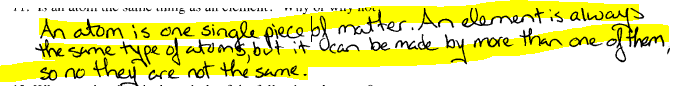 11. Is an atom the same thing as an element? Why or why not?
An atom is one single piece of matter. An element is always
the same type of atoms, but it can be made by more than one of them,
so no they are not the same.